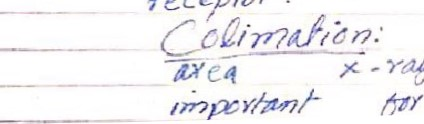 receptor.
Colimation:
area x-ray
important for